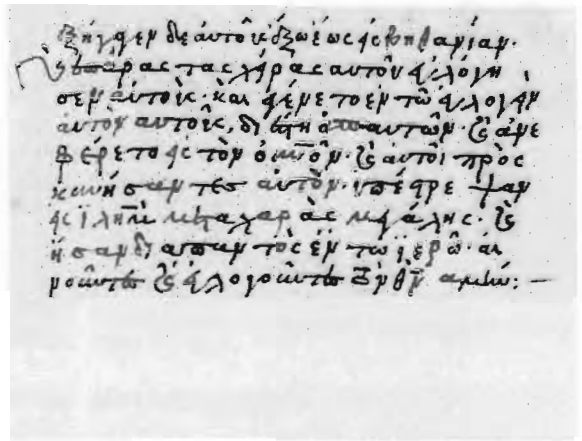 ἐξήγαγεν δὲ αὐτοὺς ἔξω ἕως εἰς βηθανίαν·
καὶ ἐπάρας τὰς χεῖρας αὐτοῦ εὐλόγη
σεν αὐτούς· καὶ ἐγένετο ἐν τῷ εὐλογεῖν
αὐτὸν αὐτούς, διέστη ἀπ αὐτῶν· καὶ ἀνε
φέρετο εἰς τὸν οὐνόν· καὶ αὐτοὶ πρὸς
κυνήσαντες αὐτὸν· ὑπέστρεψαν
εἰς ϊλημ μετὰ χαρᾶς μεγάλης· καὶ
ἦσαν διαπαντὸς ἐν τῷ ϊερῷ· αἰ
νοῦντες καὶ εὐλογοῦντες τὸν θν ἀμήν: —